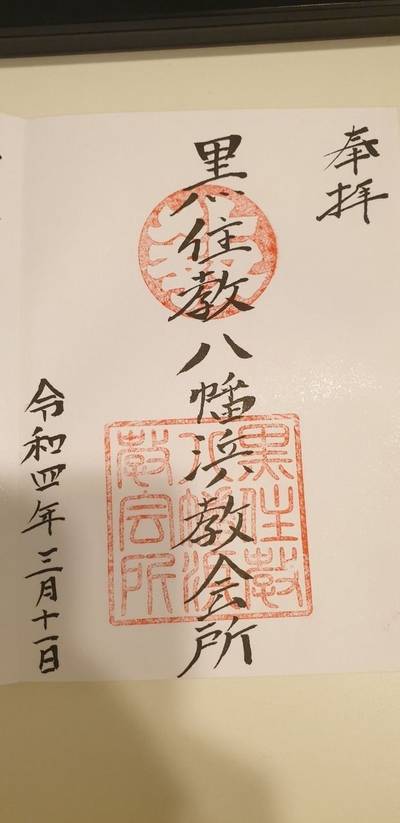 奉拝
黒住教八幡浜教会所
黒住教
八幡浜
教会所
令和四年三月十一日